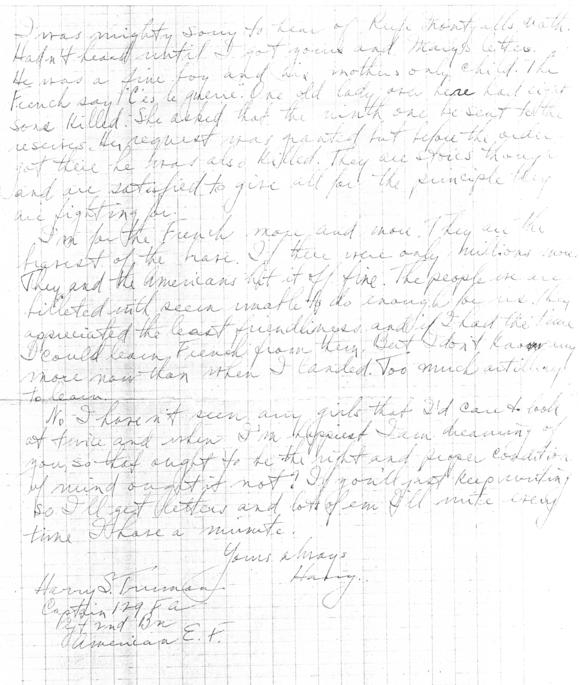 I was mighty sorry to hear of Rufe Montgalls death.
Hadn't heard until I got yours and Mary's letters.
He was a fine boy and his mothers only child. The
French say "C'es le guerre" One old lady over here had eight
sons killed. She asked that the ninth one be sent to the
reserves. Her request was granted but before the order
got there he was also killed. They are stoics though
and are satisfied to give all for the principle they
are fighting for.
I'm for the French more and more. They are the
bravest of the brave. If there were only millions more.
They and the Americans hit it off fine. The people we are
billeted with seem unable to do enough for us. They
appreciated the least friendliness and if I had the time
I could learn French from them. But I don't know any
more now than when I landed. Too much artillery
to learn.
No I haven't seen any girls that I'd care to look
at twice and when I'm happiest I am dreaming of
you, so that ought to be the right and proper condition
of mind ought it not? If you'll just keep writing
so I'll get letters and lots of em I'll write every
time I have a minute.
Yours always
Harry.
Harry S. Truman
Captain 129 F A
2nd Bn
American E. F.